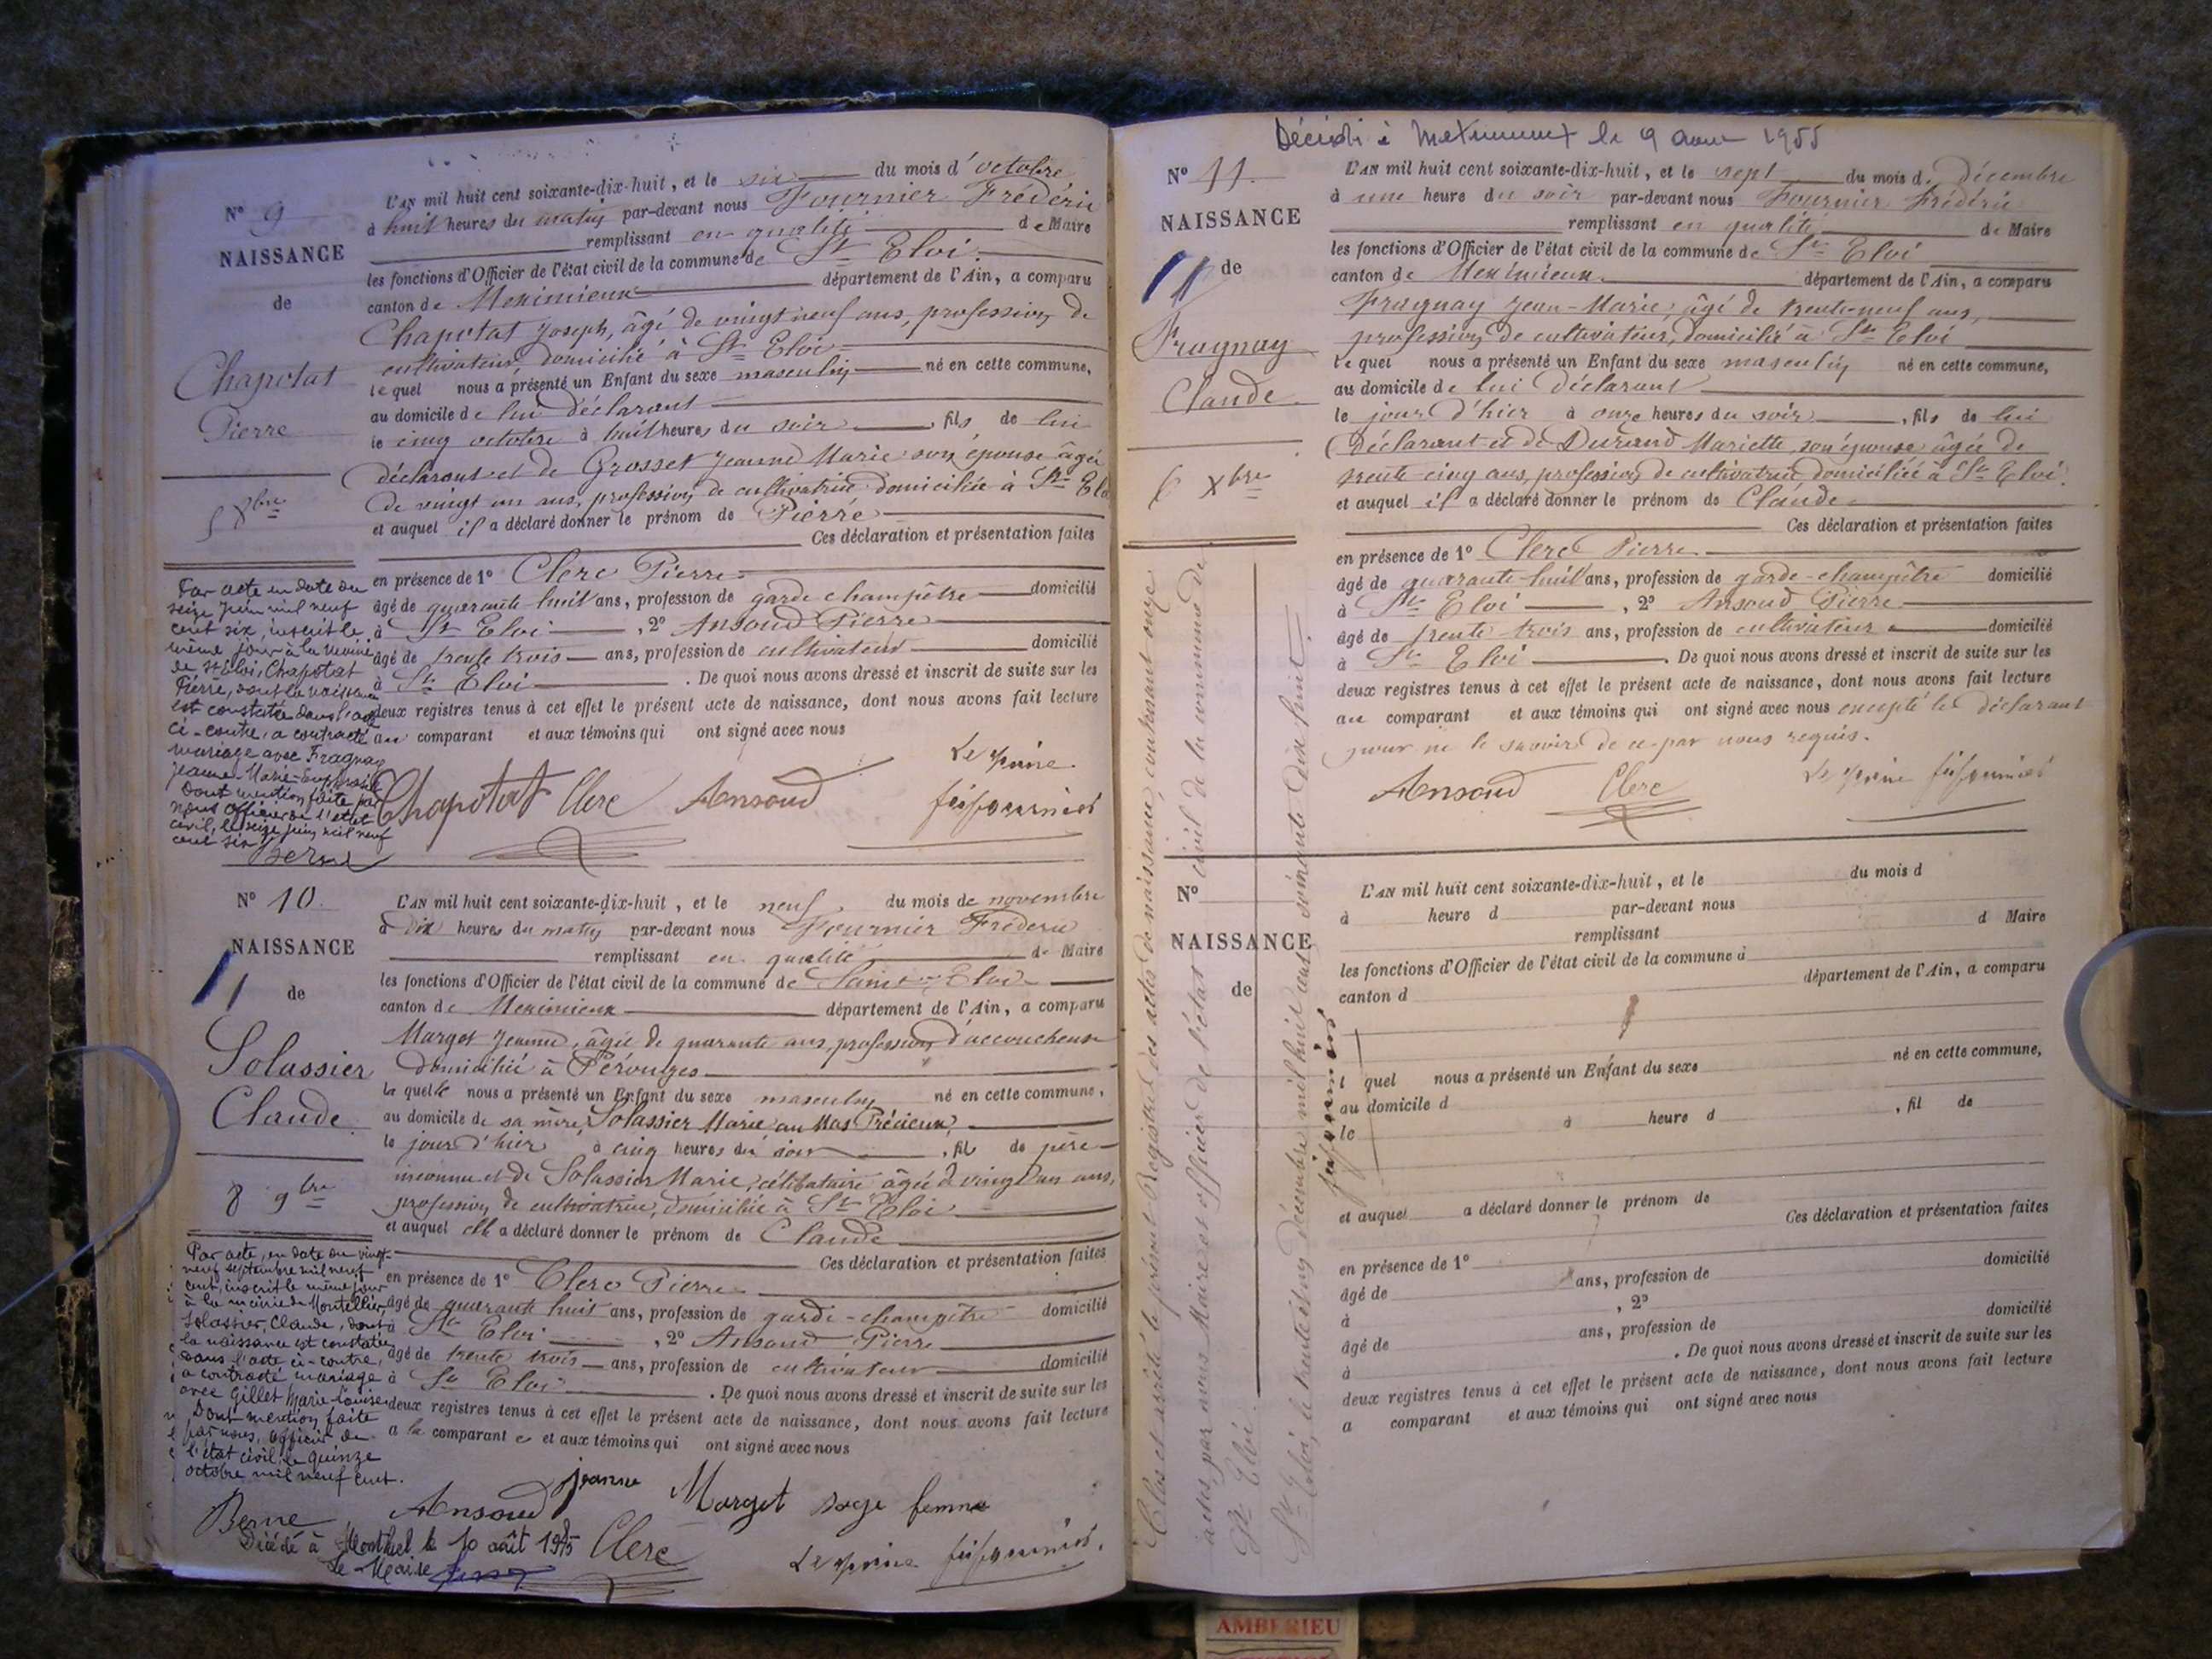 N° 9
NAISSANCE
de
Chapotat
Pierre
5 8bre
L'AN mil huit cent soixante-dix-huit, et le six du mois d'octobre
à huit heures du matin par-devant nous Fournier Frédéric
remplissant en qualité de Maire
les fonctions d'Officier de l'état civil de la commune de St Eloi
canton de Meximieux département de l'Ain, a comparu
Chapotat Joseph, âgé de vingt neuf ans, profession de
cultivateur, domicilié à St Eloi
lequel nous a présenté un Enfant du sexe masculin né en cette commune,
au domicile de lui déclarant
le cinq octobre à huit heures du soir, fils de lui
déclarant et de Grosset Jeanne Marie son épouse âgée
de vingt un ans, profession de cultivatrice domiciliée à St Elo
et auquel il a déclaré donner le prénom de Pierre
Ces déclaration et présentation faites
en présence de 1° Clerc Pierre
âgé de quarante-huit ans, profession de garde champêtre domicilié
à St Eloi, 2° Ansoud Pierre
âgé de trente trois ans, profession de cultivateur domicilié
à St Eloi. De quoi nous avons dressé et inscrit de suite sur les
deux registres tenus à cet effet le présent acte de naissance, dont nous avons fait lecture
au comparant et aux témoins qui ont signé avec nous
Le Maire
Chapotat Clerc Ansoud
Par acte en date du
seize Juin mil neuf
cent six, inscrit le
même jour à la Mairie
de St Eloi, Chapotat
Pierre, dont la naissance
est constatée dans l'acte
ci-contre, a contracté
mariage avec Fragnay
Jeanne-Marie-Euphrasie
Dont mention faite par
nous officier de l'état
civil, le seize Juin mil neuf
cent six
Berne
N° 10
NAISSANCE
de
Solassier
Claude
8 9bre
L'AN mil huit cent soixante-dix-huit, et le neuf du mois de novembre
à dix heures du matin par-devant nous Fournier Frédéric
remplissant en qualité de Maire
les fonctions d'Officier de l'état civil de la commune de Saint Eloi
canton de Meximieux département de l'Ain, a comparu
Marget Jeanne, âgée de quarante ans, profession d'accoucheuse
domiciliée à Pérouges
laquelle nous a présenté un Enfant du sexe masculin né en cette commune,
au domicile de sa mère, Solassier Marie au Mas Précieux,
le jour d'hier à cinq heures du soir, fils de père
inconnu et de Solassier Marie, célibataire âgée de vingt un ans,
profession de cultivatrice, domiciliée à St Eloi
et auquel elle a déclaré donner le prénom de Claude
Ces déclaration et présentation faites
en présence de 1° Clerc Pierre
âgé de quarante huit ans, profession de garde-champêtre domicilié
à St Eloi, 2° Ansoud Pierre
âgé de trente trois ans, profession de cultivateur domicilié
à St Eloi. De quoi nous avons dressé et inscrit de suite sur les
deux registres tenus à cet effet le présent acte de naissance, dont nous avons fait lecture
a la comparante et aux témoins qui ont signé avec nous
Ansoud Jeanne Marget sage femme
Clerc Le Maire
Par acte, en date du vingt-
neuf septembre mil neuf
cent, inscrit le même jour
à la mairie de Montellier,
Solassier, Claude, dont
la naissance est constatée
dans l'acte ci-contre,
a contracté mariage
avec Gillet Marie-Louise
Dont mention faite
par nous, officier de
l'état civil, le quinze
octobre mil neuf cent.
Berne
Décédé à Monthiel le 10 août 1945
Le Maire
Décédé à Meximieux le 9 1955
N° 11
NAISSANCE
de
Fragnay
Claude
6 Xbre
L'AN mil huit cent soixante-dix-huit, et le sept du mois de décembre
à une heure du soir par-devant nous Fournier Frédéric
remplissant en qualité de Maire
les fonctions d'Officier de l'état civil de la commune de St Eloi
canton de Meximieux département de l'Ain, a comparu
Fragnay Jean-Marie, âgé de trente-neuf ans,
profession de cultivateur, domicilié à St Eloi
lequel nous a présenté un Enfant du sexe masculin né en cette commune,
au domicile de lui déclarant
le jour d'hier à onze heures du soir, fils de lui
déclarant et de Durand Mariette, son épouse âgée de
trente-cinq ans, profession de cultivatrice domiciliée à St Eloi
et auquel il a déclaré donner le prénom de Claude
Ces déclaration et présentation faites
en présence de 1° Clerc Pierre
âgé de quarante-huit ans, profession de garde-champêtre domicilié
à St Eloi, 2° Ansoud Pierre
âgé de trente trois ans, profession de cultivateur domicilié
à St Eloi. De quoi nous avons dressé et inscrit de suite sur les
deux registres tenus à cet effet le présent acte de naissance, dont nous avons fait lecture
au comparant et aux témoins qui ont signé avec nous excepté le déclarant
pour ne le savoir de ce par nous requis.
Ansoud Clerc Le Maire
N°
NAISSANCE
de
L'AN mil huit cent soixante-dix-huit, et le du mois d
à heure d par-devant nous
remplissant d Maire
les fonctions d'Officier de l'état civil de la commune d
canton d département de l'Ain, a comparu
l quel nous a présenté un Enfant du sexe né en cette commune,
au domicile d
le à heure d , fil de
et auquel a déclaré donner le prénom de
Ces déclaration et présentation faites
en présence de 1° domicilié
âgé de ans, profession de
à , 2° domicilié
âgé de ans, profession de
à . De quoi nous avons dressé et inscrit de suite sur les
deux registres tenus à cet effet le présent acte de naissance, dont nous avons fait lecture
a comparant et aux témoins qui ont signé avec nous
Clos et arrêté le présent Registre des actes de naissance, contenant onze
actes, par nous Maire et officier de l'état civil de la commune de
St Eloi.
St Eloi, le trente et un décembre mil huit cent soixante dix huit.
AMBERIEU